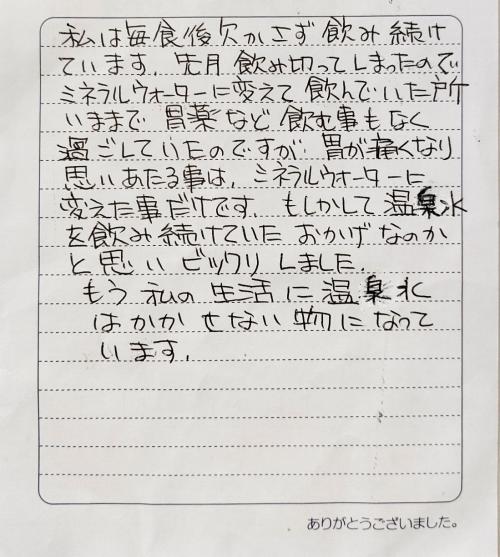 私は毎食後欠かさず飲み続け
ています。先月飲み切ってしまったので
ミネラルウォーターに変えて飲んでいた所
いままで胃薬など飲む事もなく
過ごしていたのですが胃が痛くなり
思いあたる事は、ミネラルウォーターに
変えた事だけです。もしかして温泉水
を飲み続けていたおかげなのか
と思いビックリしました。
もう私の生活に温泉水
はかかせない物になって
います。
ありがとうございました。